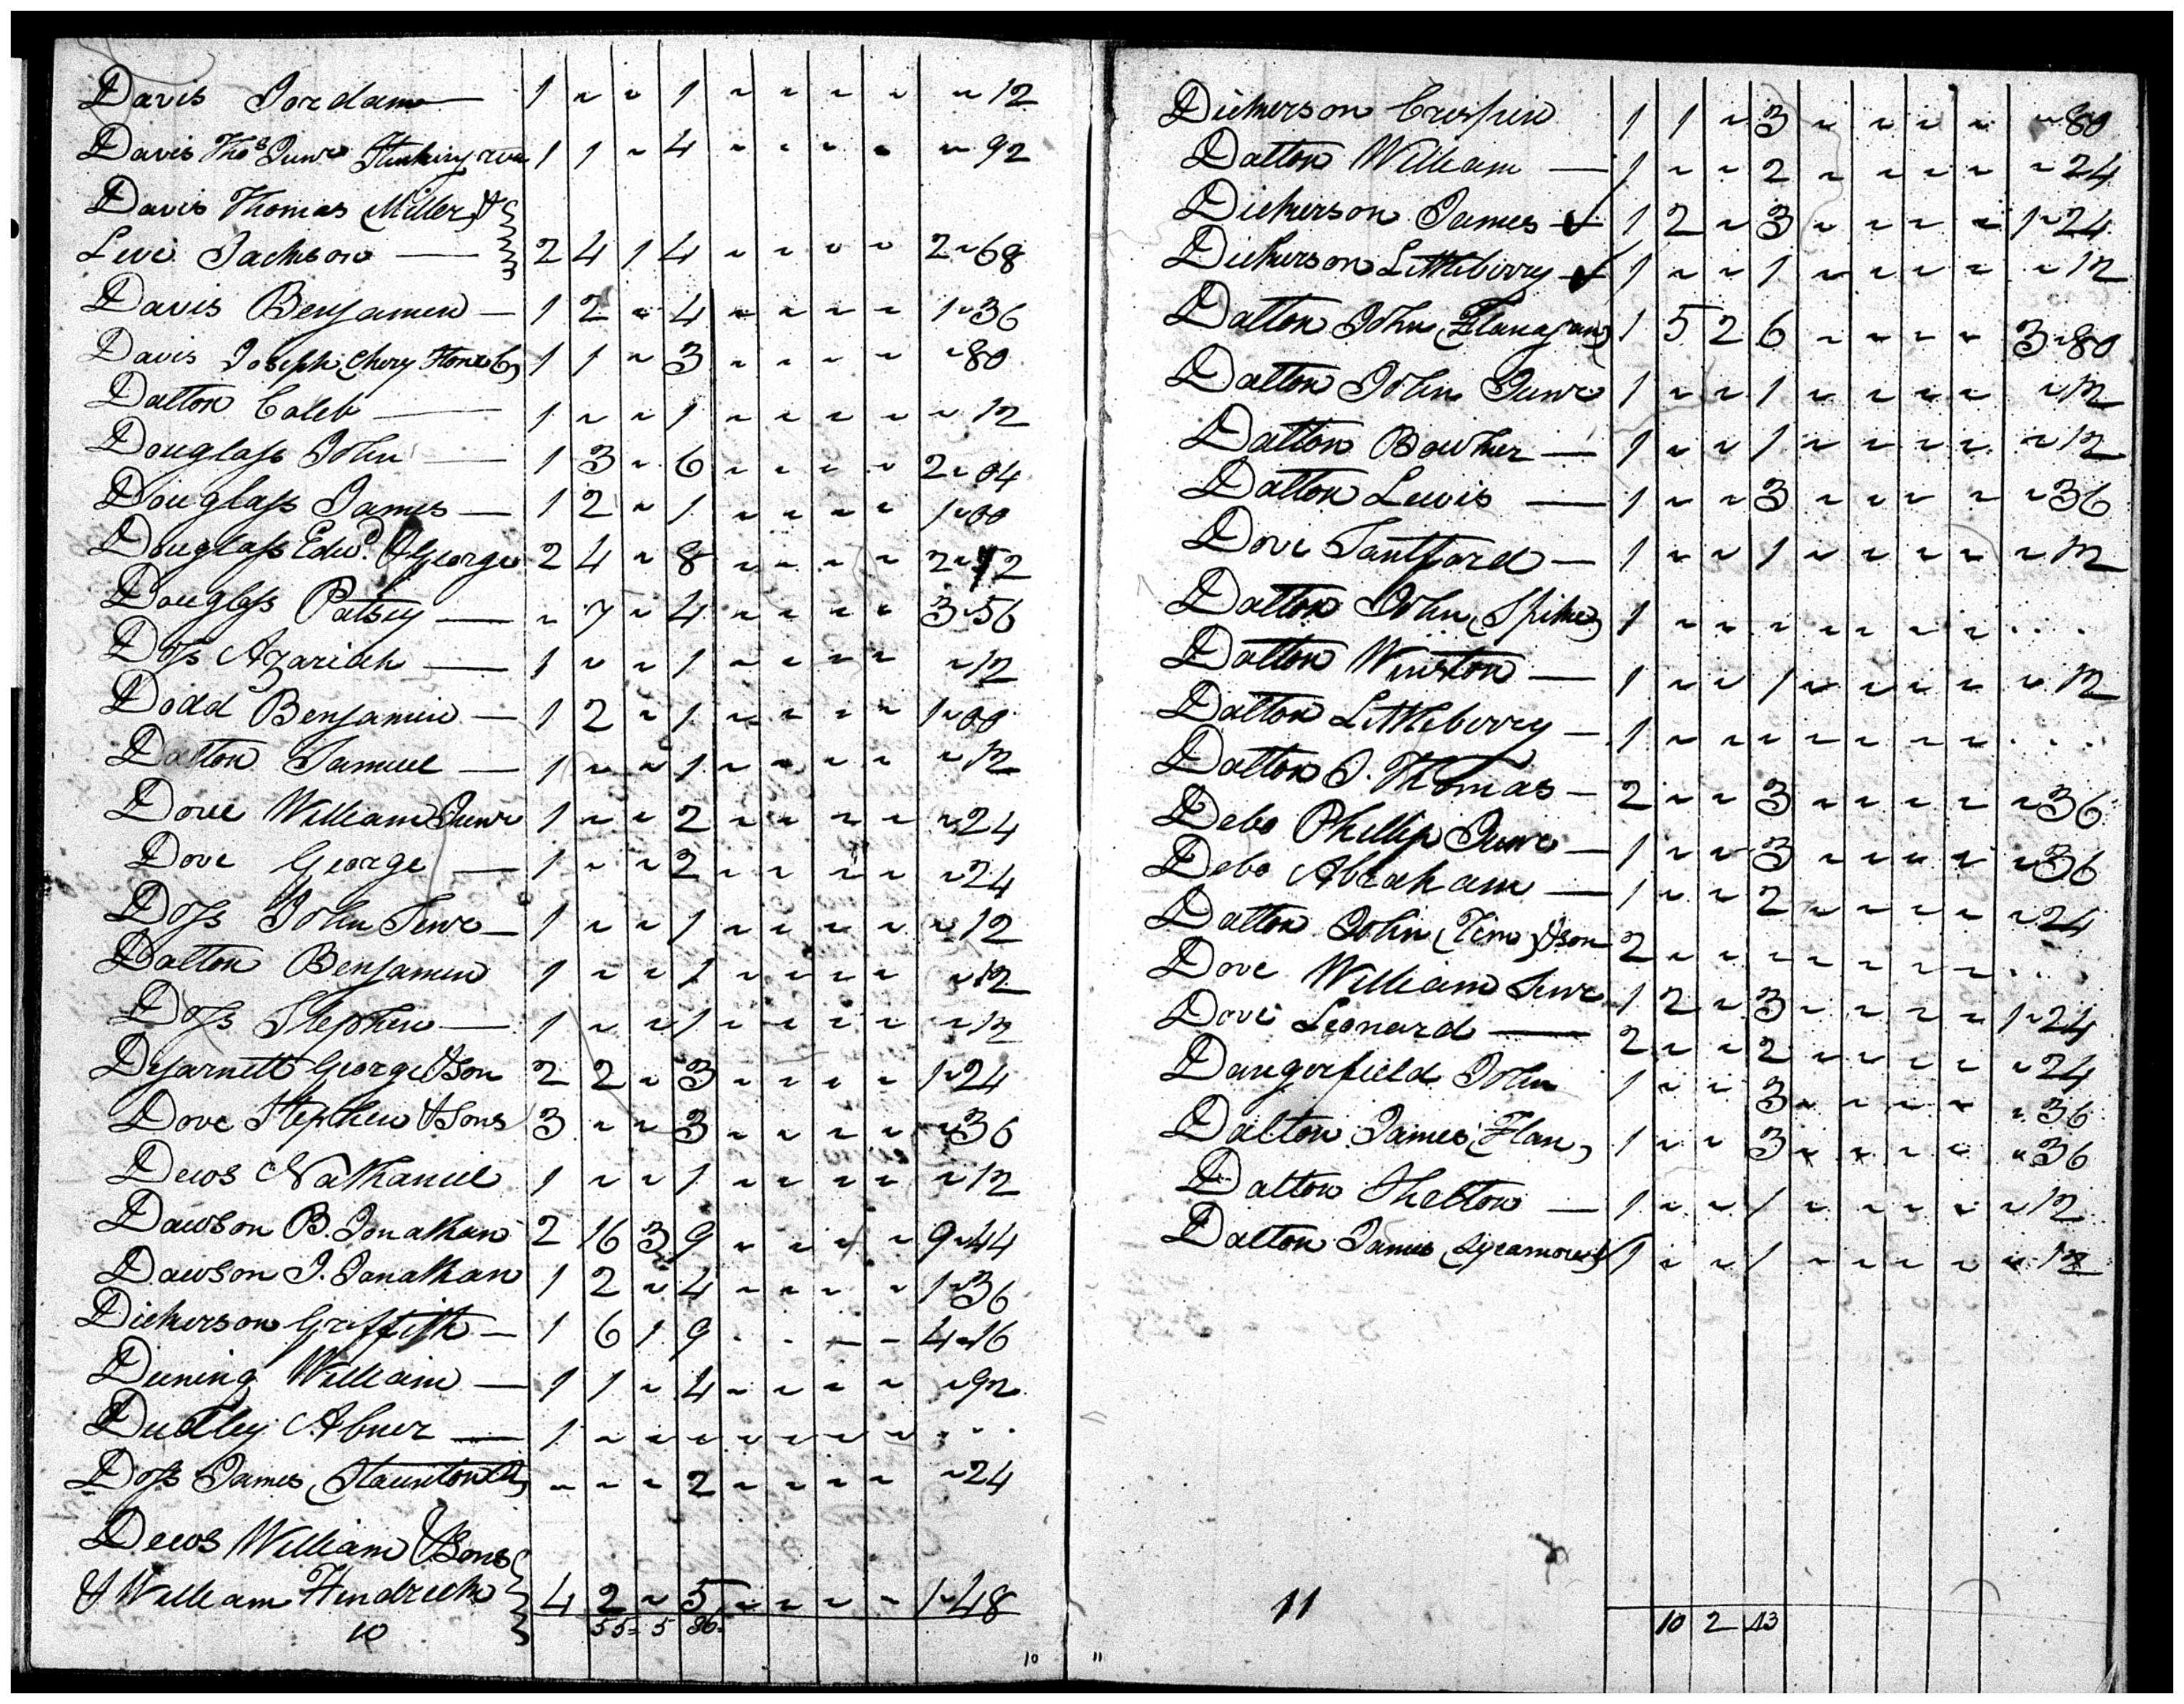 Davis Jordam — 1 ~ ~ 1 ~ ~ ~ ~ ~12
Davis Thos Junr Stinking river 1 1 ~ 4 ~ ~ ~ ~ ~92
Davis Thomas (Miller) &
Levi Jackson — 2 4 1 4 ~ ~ ~ ~ 2~68
Davis Benjamin — 1 2 ~ 4 ~ ~ ~ ~ 1~36
Davis Joseph (Chery Stone C) 1 1 ~ 3 ~ ~ ~ ~ ~80
Dalton Caleb — 1 ~ ~ 1 ~ ~ ~ ~ ~12
Douglass John — 1 3 ~ 6 ~ ~ ~ ~ 2~04
Douglass James — 1 2 ~ 1 ~ ~ ~ ~ 1~00
Douglass Edwd. & George 2 4 ~ 8 ~ ~ ~ ~ 2~72
Douglass Patsey — ~ 7 ~ 4 ~ ~ ~ ~ 3~56
Doss Azariah — 1 ~ ~ 1 ~ ~ ~ ~ ~12
Dodd Benjamin — 1 2 ~ 1 ~ ~ ~ ~ 1~00
Dalton Samuel — 1 ~ ~ 1 ~ ~ ~ ~ ~12
Dove William Junr 1 ~ ~ 2 ~ ~ ~ ~ ~24
Dove George — 1 ~ ~ 2 ~ ~ ~ ~ ~24
Doss John Senr — 1 ~ ~ 1 ~ ~ ~ ~ ~12
Dalton Benjamin 1 ~ ~ 1 ~ ~ ~ ~ ~12
Doss Stephen — 1 ~ ~ 1 ~ ~ ~ ~ ~12
Dejarnett George & Son 2 2 ~ 3 ~ ~ ~ ~ 1~24
Dove Stephen & Sons 3 ~ ~ 3 ~ ~ ~ ~ ~36
Dews Nathaniel 1 ~ ~ 1 ~ ~ ~ ~ ~12
Dawson B. Jonathan 2 16 3 9 ~ ~ ~ ~ 9~44
Dawson J. Jonathan 1 2 ~ 4 ~ ~ ~ ~ 1~36
Dickerson Griffith — 1 6 1 9 ~ ~ ~ ~ 4~16
Deening William — 1 1 ~ 4 ~ ~ ~ ~ ~92
Dudley Abner — 1 ~ ~ ~ ~ ~ ~ ~ . . .
Doss James (Staunton R) ~ ~ ~ 2 ~ ~ ~ ~ ~24
Dews William & Sons
& William Hendrick 4 2 ~ 5 ~ ~ ~ ~ 1~48
10 55 5 86
10
Dickerson Crespin 1 1 ~ 3 ~ ~ ~ ~ ~80
Dalton William — 1 ~ ~ 2 ~ ~ ~ ~ ~24
Dickerson James ✓ 1 2 ~ 3 ~ ~ ~ ~ 1~24
Dickerson Littleberry ✓ 1 ~ ~ 1 ~ ~ ~ ~ ~12
Dalton John (Flanagan) 1 5 2 6 ~ ~ ~ ~ 3~80
Dalton John Junr 1 ~ ~ 1 ~ ~ ~ ~ ~12
Dalton Bowker — 1 ~ ~ 1 ~ ~ ~ ~ ~12
Dalton Lewis — 1 ~ ~ 3 ~ ~ ~ ~ ~36
Dove Santford — 1 ~ ~ 1 ~ ~ ~ ~ ~12
Dalton John (Spike) 1 ~ ~ ~ ~ ~ ~ ~ . . .
Dalton Winston — 1 ~ ~ 1 ~ ~ ~ ~ ~12
Dalton Littleberry — 1 ~ ~ ~ ~ ~ ~ ~ . . .
Dalton J. Thomas — 2 ~ ~ 3 ~ ~ ~ ~ ~36
Debo Phillip Junr — 1 ~ ~ 3 ~ ~ ~ ~ ~36
Debo Abraham — 1 ~ ~ 2 ~ ~ ~ ~ ~24
Dalton John (Tim) & son 2 ~ ~ ~ ~ ~ ~ ~ . .
Dove William Senr 1 2 ~ 3 ~ ~ ~ ~ 1~24
Dove Leonard — 2 ~ ~ 2 ~ ~ ~ ~ ~24
Dangerfield John 1 ~ ~ 3 ~ ~ ~ ~ ~36
Dalton James (Flan) 1 ~ ~ 3 ~ ~ ~ ~ ~36
Dalton Shelton — 1 ~ ~ 1 ~ ~ ~ ~ ~12
Dalton James (Sycamore) 1 ~ ~ 1 ~ ~ ~ ~ ~12
11 10 2 43
11